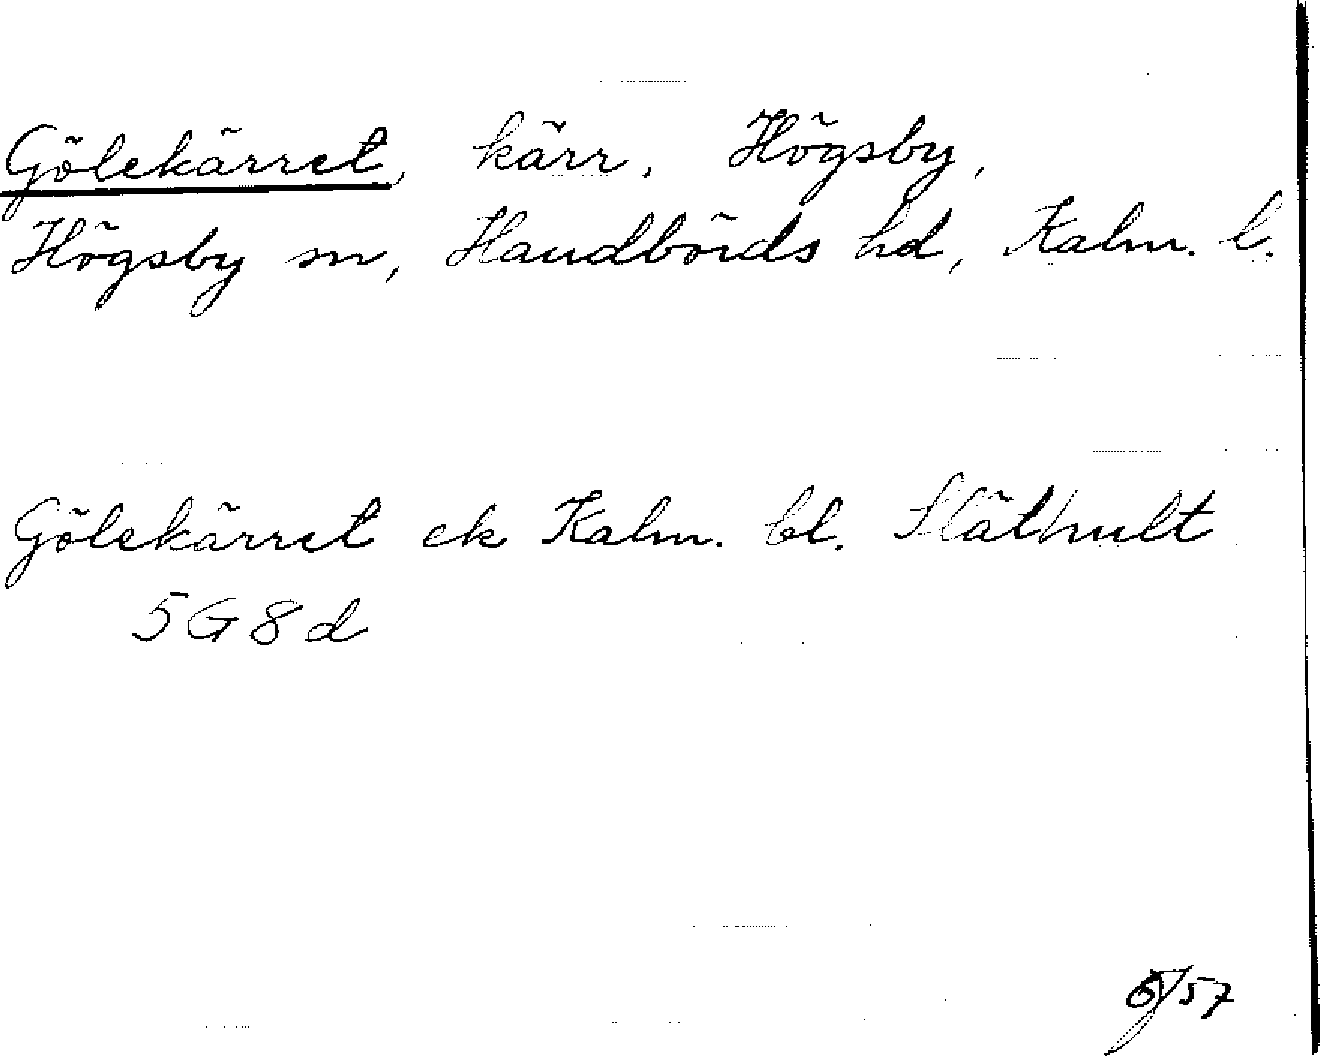 Gölekärret, kärr, Högsby,
Högsby sn, Handbörds hd, Kalm. l.
Gölekärret ek Kalm. bl. Släthult
5G8d
/57